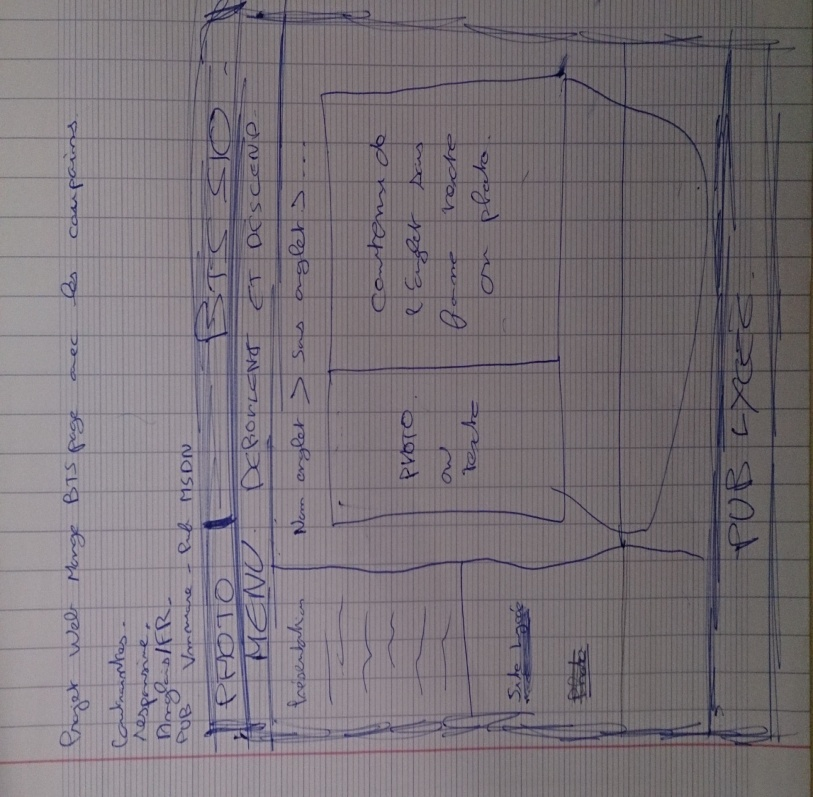 Projet Web Marge BTS page avec les compains.
Contraintes.
responsive.
Anglais/FR.
PUB Vmware - Pub MSDN
PHOTO BTS SIO.
MENU. DEROULENT ET DESCEND.
Présentation
Nom onglet > sous onglet > ...
PHOTO.
ou
texte
Contenu de
l'onglet sous
forme texte
ou photo.
Site Lycée
Photo
PUB LYCEE.